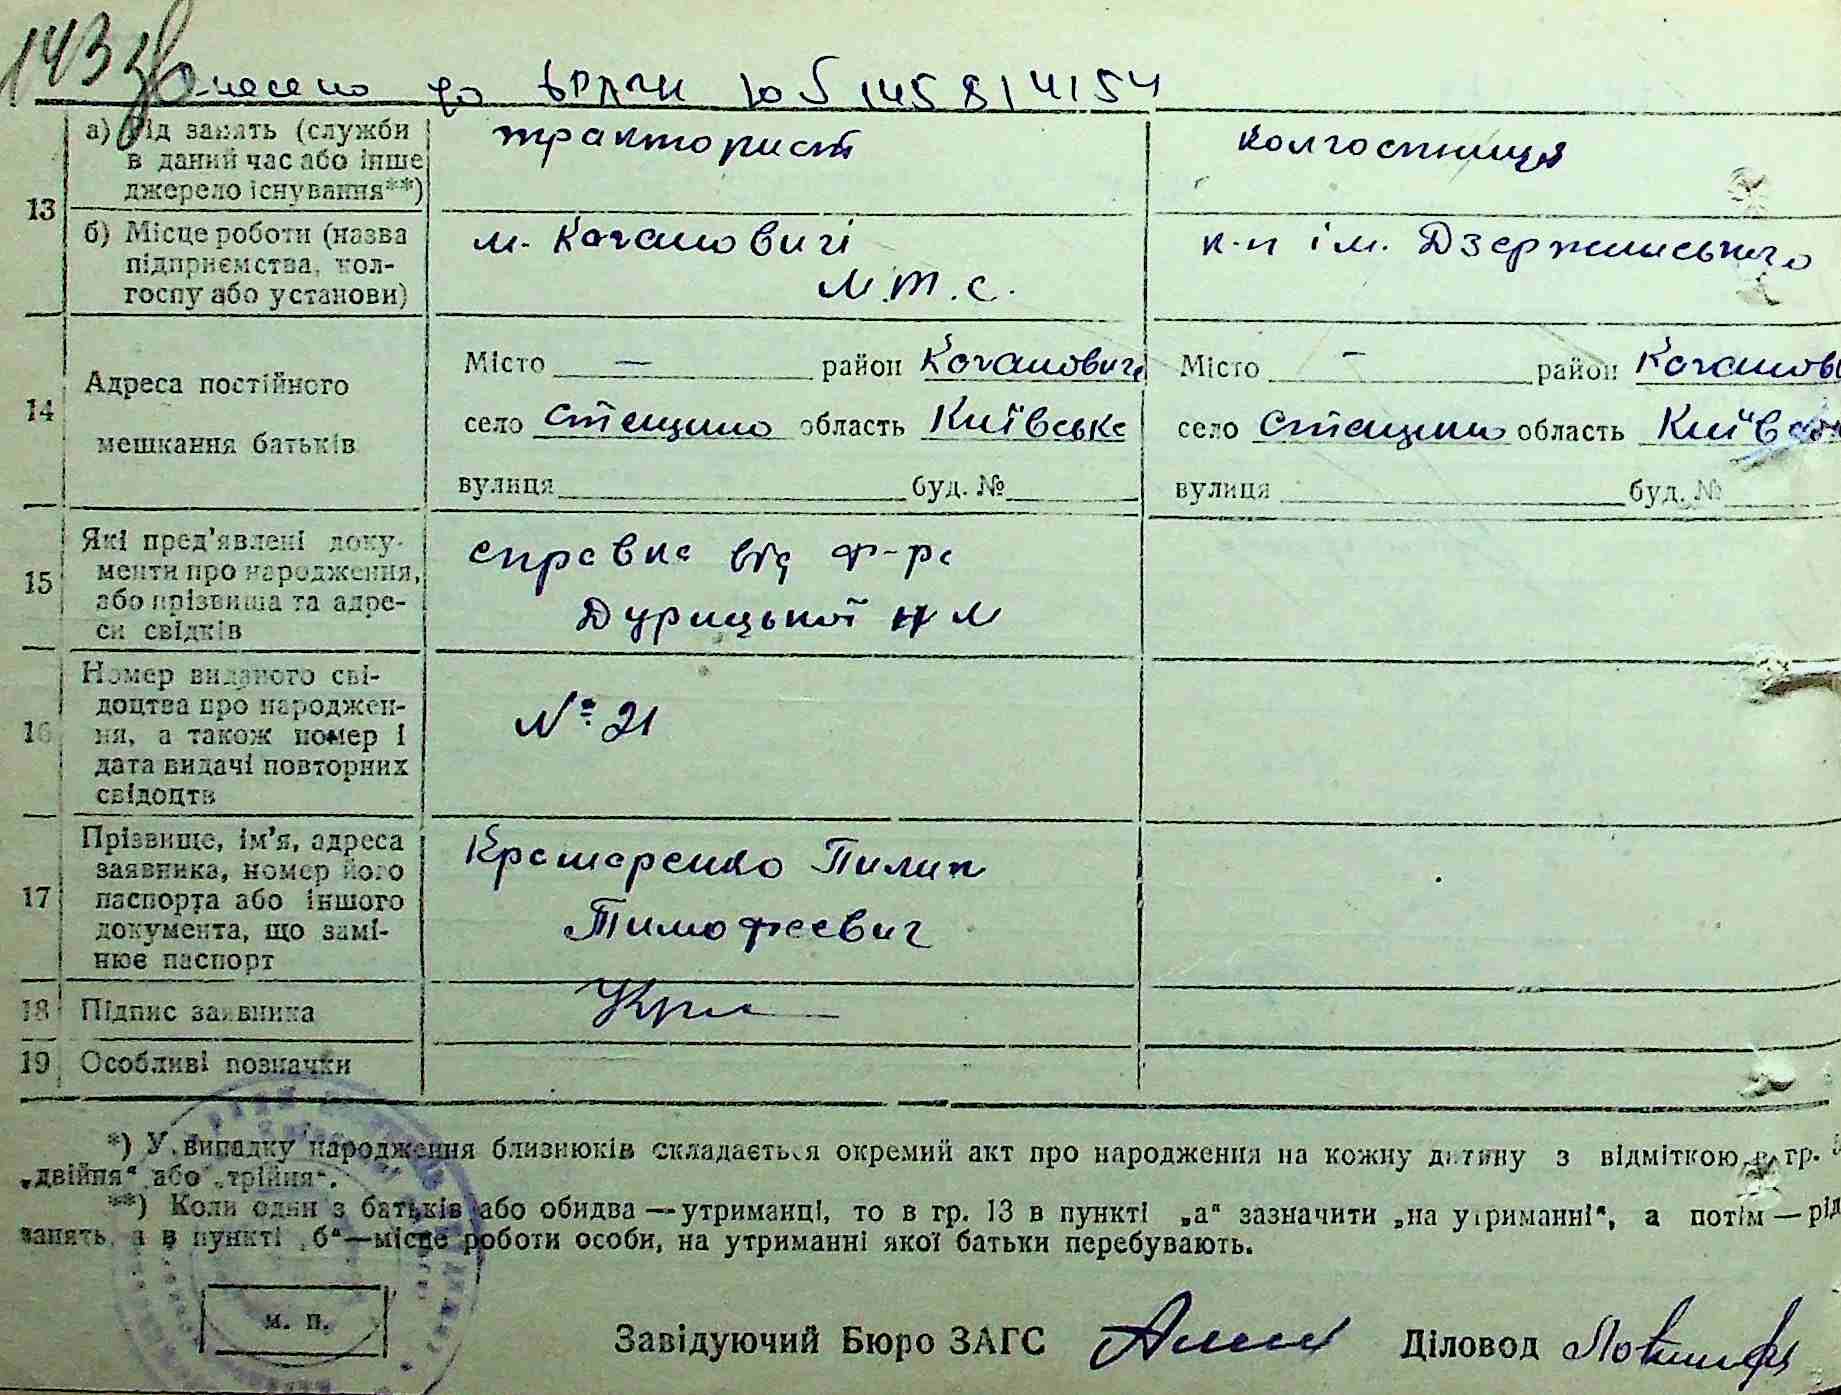 143 зв
Внесено до ДРАЦС
а) Рід занять (служби в даний час або інше джерело існування**)
тракторист
колгоспниця
13
б) Місце роботи (назва підприємства, колгоспу або установи)
м. Кагановичі
М.Т.С.
к-п ім. Дзержинського
14
Адреса постійного
мешкання батьків
Місто — район Каганович
село Стещино область Київська
вулиця буд. №
Місто — район Каганов
село Стещино область Київська
вулиця буд. №
15
Які пред'явлені доку-
менти про народження,
або прізвища та адре-
си свідків
справка від ф-ра
Дурицької
16
Номер виданого сві-
доцтва про народжен-
ня, а також номер і
дата видачі повторних
свідоцтв
№ 21
17
Прізвище, ім'я, адреса
заявника, номер його
паспорта або іншого
документа, що замі-
нює паспорт
Крамаренко Пилип
Тимофеевич
18
Підпис заявника
19
Особливі позначки
*) У випадку народження близнюків складається окремий акт про народження на кожну дитину з відміткою в гр.
„двійня“ або „трійня“.
**) Коли один з батьків або обидва — утриманці, то в гр. 13 в пункті „а“ зазначити „на утриманні“, а потім — рід
занять, а в пункті „б“ — місце роботи особи, на утриманні якої батьки перебувають.
м. п.
Завідуючий Бюро ЗАГС
Діловод